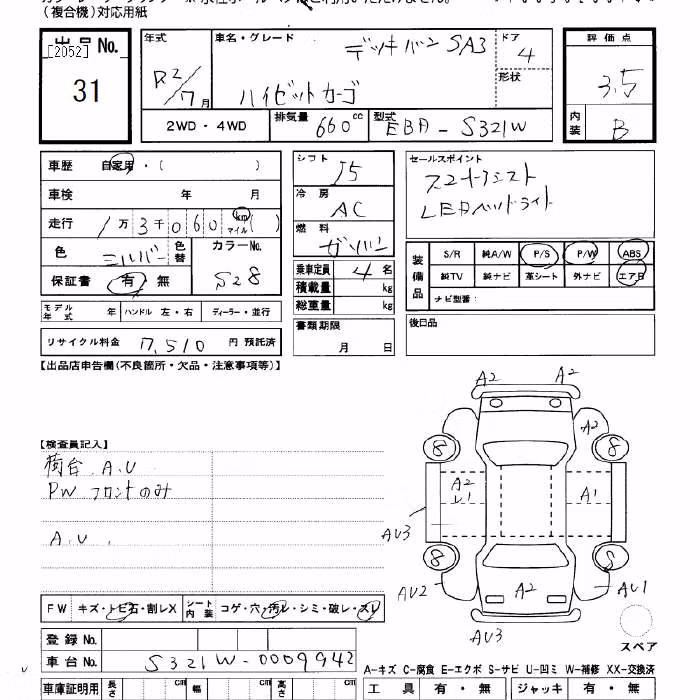 （複合機）対応用紙
出品No.
[2052]
31
年式
R2/7月
車名・グレード
デッキバン SA3
ハイゼットカーゴ
ドア
4
形状
評価点
3.5
内装
B
2WD・4WD
排気量 660cc
型式 EBA-S321W
車歴 自家用・( )
車検 年 月
走行 1万3千060 km マイル( )
色 シルバー
色替
カラーNo.
S28
保証書 有 無
モデル年式 年 ハンドル 左・右 ディーラー・並行
リサイクル料金 円 預託済
シフト I5
冷房 AC
燃料 ガソリン
乗車定員 4 名
積載量 kg
総重量 kg
書類期限
月 日
セールスポイント
スマートアシスト
LEDヘッドライト
装備品
S/R 純A/W P/S P/W ABS
純TV 純ナビ 革シート 外ナビ エアB
ナビ型番：
後日品
【出品店申告欄(不良箇所・欠品・注意事項等)】
【検査員記入】
荷台 A.U
PW フロントのみ
A.U.
A2 A2
A2
8 8
A2 A1
AU3
8 S
AU2 A2 AU1
AU3
スペア
FW キズ・トビ石・割レX シート内装 コゲ・穴・汚レ・シミ・破レ・スレ
登録No.
車台No. S321W-0009942
A-キズ C-腐食 E-エクボ S-サビ U-凹ミ W-補修 XX-交換済
車庫証明用 長さ cm 幅 cm 高さ cm
工具 有・無 ジャッキ 有・無